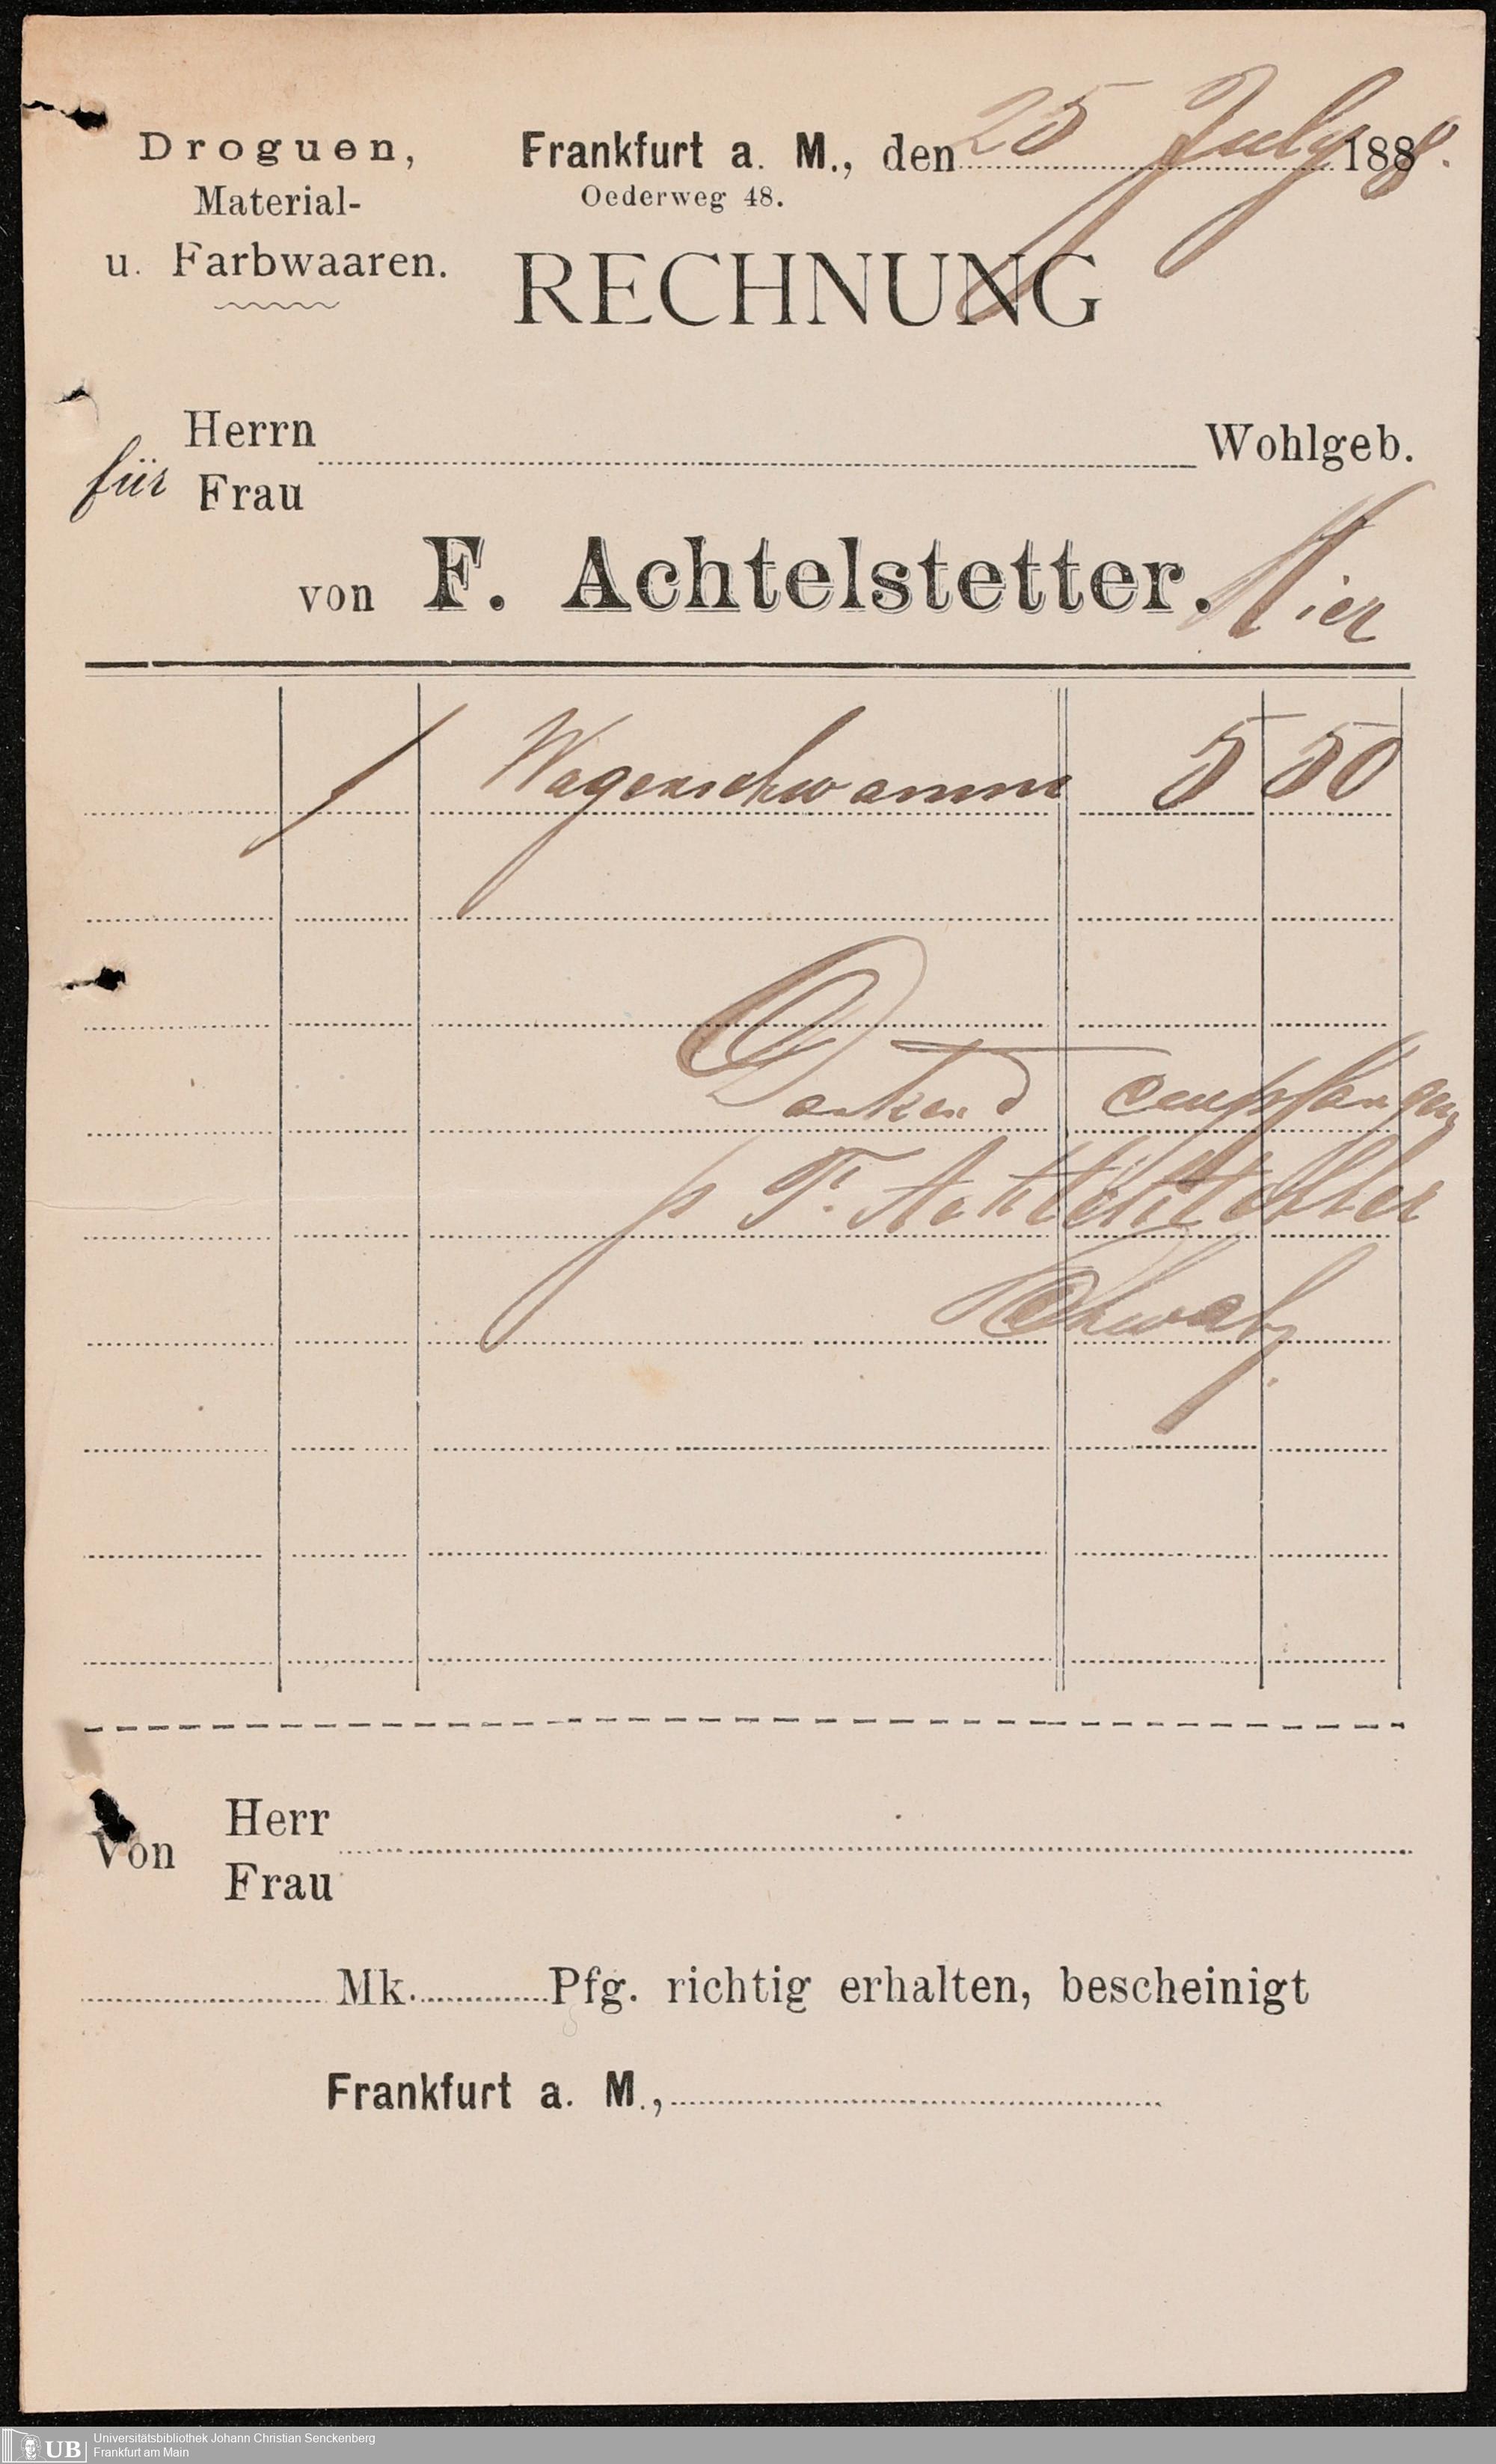 Droguen,
Material-
u. Farbwaaren.
Frankfurt a. M., den 25 July 1888.
Oederweg 48.
RECHNUNG
für Herrn Wohlgeb.
Frau
von F. Achtelstetter. Hier
1 Wagenschwamm 5 50
Dankend empfangen
p F. Achtelstetter
Schwab.
Von Herr
Frau
Mk. Pfg. richtig erhalten, bescheinigt
Frankfurt a. M.,
UB Universitätsbibliothek Johann Christian Senckenberg
Frankfurt am Main